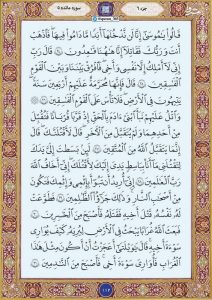 جزء ٦
سوره مائده ٥
قَالُوا يَا مُوسَىٰ إِنَّا لَنْ نَدْخُلَهَا أَبَدًا مَا دَامُوا فِيهَا فَاذْهَبْ
أَنْتَ وَرَبُّكَ فَقَاتِلَا إِنَّا هَاهُنَا قَاعِدُونَ ٢٤ قَالَ رَبِّ
إِنِّي لَا أَمْلِكُ إِلَّا نَفْسِي وَأَخِي فَافْرُقْ بَيْنَنَا وَبَيْنَ الْقَوْمِ
الْفَاسِقِينَ ٢٥ قَالَ فَإِنَّهَا مُحَرَّمَةٌ عَلَيْهِمْ أَرْبَعِينَ سَنَةً
يَتِيهُونَ فِي الْأَرْضِ فَلَا تَأْسَ عَلَى الْقَوْمِ الْفَاسِقِينَ ٢٦
وَاتْلُ عَلَيْهِمْ نَبَأَ ابْنَيْ آدَمَ بِالْحَقِّ إِذْ قَرَّبَا قُرْبَانًا فَتُقُبِّلَ
مِنْ أَحَدِهِمَا وَلَمْ يُتَقَبَّلْ مِنَ الْآخَرِ قَالَ لَأَقْتُلَنَّكَ قَالَ
إِنَّمَا يَتَقَبَّلُ اللَّهُ مِنَ الْمُتَّقِينَ ٢٧ لَئِنْ بَسَطْتَ إِلَيَّ يَدَكَ
لِتَقْتُلَنِي مَا أَنَا بِبَاسِطٍ يَدِيَ إِلَيْكَ لِأَقْتُلَكَ إِنِّي أَخَافُ اللَّهَ
رَبَّ الْعَالَمِينَ ٢٨ إِنِّي أُرِيدُ أَنْ تَبُوءَ بِإِثْمِي وَإِثْمِكَ فَتَكُونَ
مِنْ أَصْحَابِ النَّارِ وَذَٰلِكَ جَزَاءُ الظَّالِمِينَ ٢٩ فَطَوَّعَتْ
لَهُ نَفْسُهُ قَتْلَ أَخِيهِ فَقَتَلَهُ فَأَصْبَحَ مِنَ الْخَاسِرِينَ ٣٠
فَبَعَثَ اللَّهُ غُرَابًا يَبْحَثُ فِي الْأَرْضِ لِيُرِيَهُ كَيْفَ يُوَارِي
سَوْءَةَ أَخِيهِ قَالَ يَا وَيْلَتَا أَعَجَزْتُ أَنْ أَكُونَ مِثْلَ هَٰذَا
الْغُرَابِ فَأُوَارِيَ سَوْءَةَ أَخِي فَأَصْبَحَ مِنَ النَّادِمِينَ ٣١
١١٢